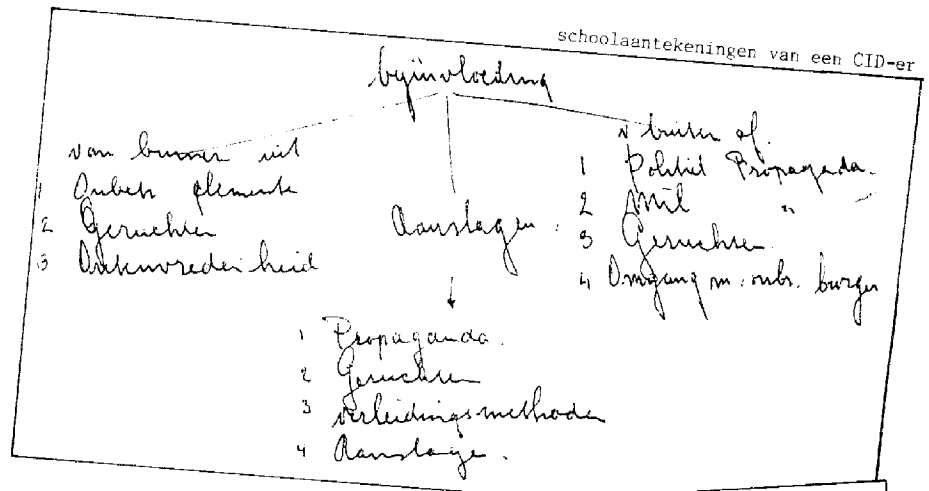 schoolaantekeningen van een CID-er
beïnvloeding
van binnen uit
1 Onbetr elementen
2 Geruchten
3 Ontevredenheid
Aanslagen.
v buiten af.
1 Politiek Propaganda.
2 Mil "
3 Geruchten.
4 Omgang m. onbr. burger
1 Propaganda.
2 Geruchten
3 verleidingsmethoden
4 Aanslagen.